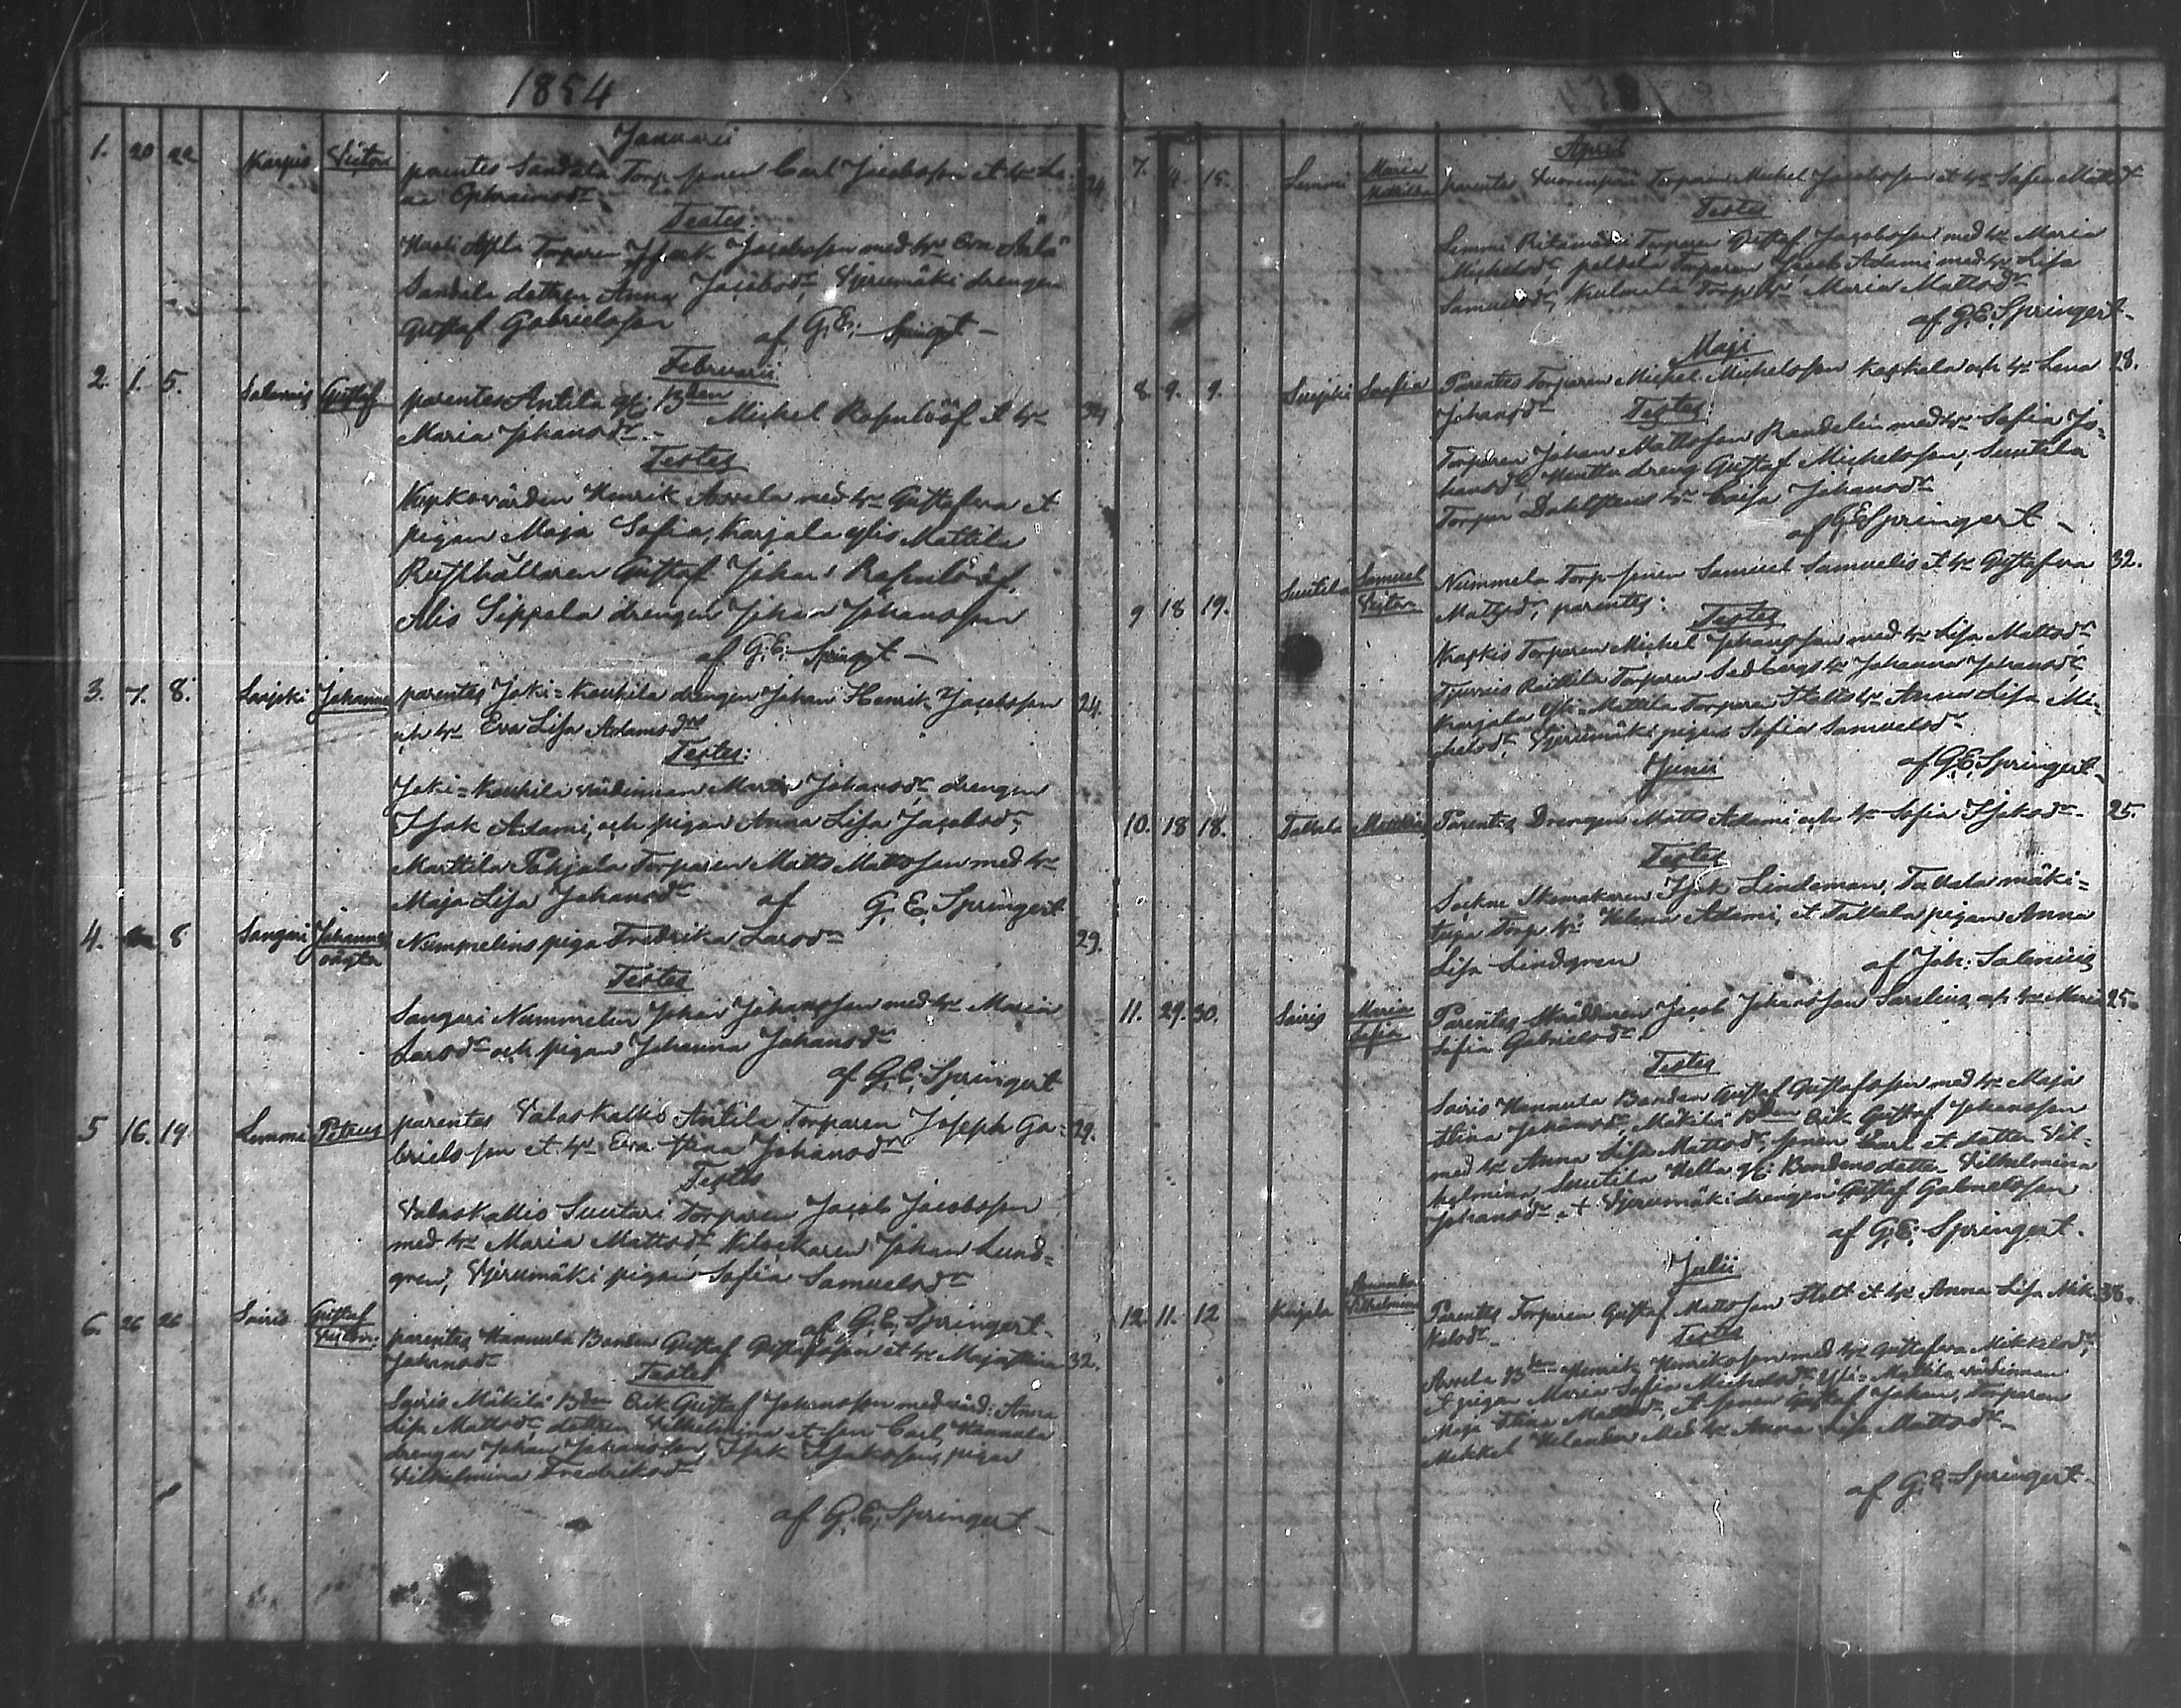 1854
Januarii
1. 20 22 Karpis Victor parentes Sandala Torp-sonen Carl Jacobsson et h:u Le- 24
na Ephraimsdr
Testes:
Torparen Isaak Jacobsson med h:u Eva
Sandala dottren Anna Jacobsdr, Vjerumäki drengen
Gustaf Gabrielsson af G:E: Springt
Februarii
2. 1. 5. Salavais Gustaf parentes Antila Bden Michel Rosenlööf et h:u 34
Maria Johansdr
Testes
Kyrkovärden Henrik Arvela med h:u Gustafva et
pigan Maja Sofia, Karjala Ylis Mattila
Rusthållaren Gustaf Johan Rosenlööf,
Alis Seppala drengen Johan Johansson
af G:E: Springt
3. 7. 8. Johanna parentes Joki=Kouhila drengen Johan Henrik Jacobsson 24.
och h:u Eva Lisa Adamsdr
Testes:
Joki=Kouhila värdinnan Maria Johansdr drengen
Isak Adami, och pigan Anna Lisa Jacobsdr,
Marttila Pohjala Torparen Matts Mattsson med h:u
Maja Lisa Johansdr af G. E. Springert
4. 8 Sangari Johanna oägta Nummelins piga Fredrika Larsdr 29.
Testes
Sangari Nummelin Johan Johansson med h:u Maria
Larsdr och pigan Johanna Johansdr
af G. E. Springert
5 16. 19 Lemmi Petrus parentes Valaskallio Antila Torparen Joseph Ga- 29.
brielsson et h:u Eva Stina Johansdr
Testes
Valaskallio Suutari Torparen Jacob Jacobsson
med h:u Maria Mattsdr, Johan Lund=
gren, Vjerumäki pigan Sofia Samuelsdr
af G. E. Springert
6. 26 26 Soiris Gustaf Victor: parentes Hannula Bonden Gustaf Gustafsson et h:u Maja Stina 32.
Johansdr
Testes
Soiris Mäkilä Bden Erik Gustaf Johansson med värd: Anna
Lisa Mattsdr, dottren Vilhelmina et son Carl, Hannula
drengar Johan Johansson, Isak Isaksson, pigan
Vilhelmina Fredriksdr
af G. E. Springert
April
7. 4. 15. Lemmi Maria Mathilda parentes Vuorenpää Torparen Michel Jacobsson et h:u Sofia Mattsdr
Testes
Lemmi Torparen Gustaf Jacobsson med h:u Maria
Michelsdr, peldala Torparen Jacob Adami med h:u Lisa
Samuelsdr, Kulmala Torp h:u Maria Mattsdr
af G.E. Springert
Maji
8. 9. 9. Sofia Parentes Torparen Michel Michelsson Kaskala och h:u Lena 28.
Johansdr Testes:
Torparen Johan Mattsson Randelin med h:u Sofia Jo=
hansdr, dreng Gustaf Michelsson, Suutila
Torpar h:u Caisa Johansdr
af G E Springert
9 18 19. Suutila Samuel Victor Nummela Torp-sonen Samuel Samuelis et h:u Gustafva 32.
Mattsdr, parentes:
Testes
Karpis Torparen Michel Johansson med h:u Lisa Mattsdr,
Raitkila Torparen Sedbergs h:u Johanna Johansdr,
Karjala Yli-Mattila Torparen Stolts h:u Anna Lisa Mi=
chelsdr, Vjerumäki pigan Sofia Samuelsdr
af G.E. Springert
Junii
10. 18 18. Tattala Parentes Drengen Matts Adami och h:u Sofia Isaksdr 25.
Testes
Sockne Skomakaren Isak Lindeman, Tattala mäki=
tupa Torp h:u Helena Adami, et Tattala pigan Anna
Lisa Lindgren af Joh: Salenius
11. 29. 30. Soiris Maria Sofia Parentes Skräddaren Jacob Johansson Sarelius och h:u Maria 25.
Sofia Gabrielsdr
Testes
Soiris Hannula Bonden Gustaf Gustafsson med h:u Maja
Stina Johansdr, Mäkilä Bden Erik Gustaf Johansson
med h:u Anna Lisa Mattsdr, sonen Carl et dotter Vil=
helmina, Suutila Bondens dotter Vilhelmina
Johansdr et Vjerumäki drengen Gustaf Gabrielsson
af G.E. Springert.
Julii
12. 11. 12 Karjala Amanda Vilhelmina Parentes Torparen Gustaf Mattsson Stolt et h:u Anna Lisa Mik- 38.
kelsdr
Testes
Arvela Bden Henrik Henriksson med h:u Gustafva Mikkelsdr,
et pigan Maria Sofia Michelsdr Yli=Mattila värdinnan
Maja Stina Mattsdr, et sonen Gustaf Johan, Torparen
Mikkel Helander med h:u Anna Lisa Mattsdr
af G.E. Springert